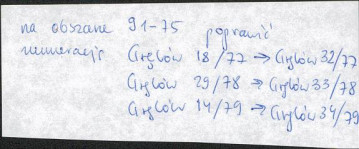 na obszarze 91-75 poprawić
numerację Gryłów 18/77 → Gryłów 32/77
Gryłów 29/78 → Gryłów 33/78
Gryłów 14/79 → Gryłów 34/79